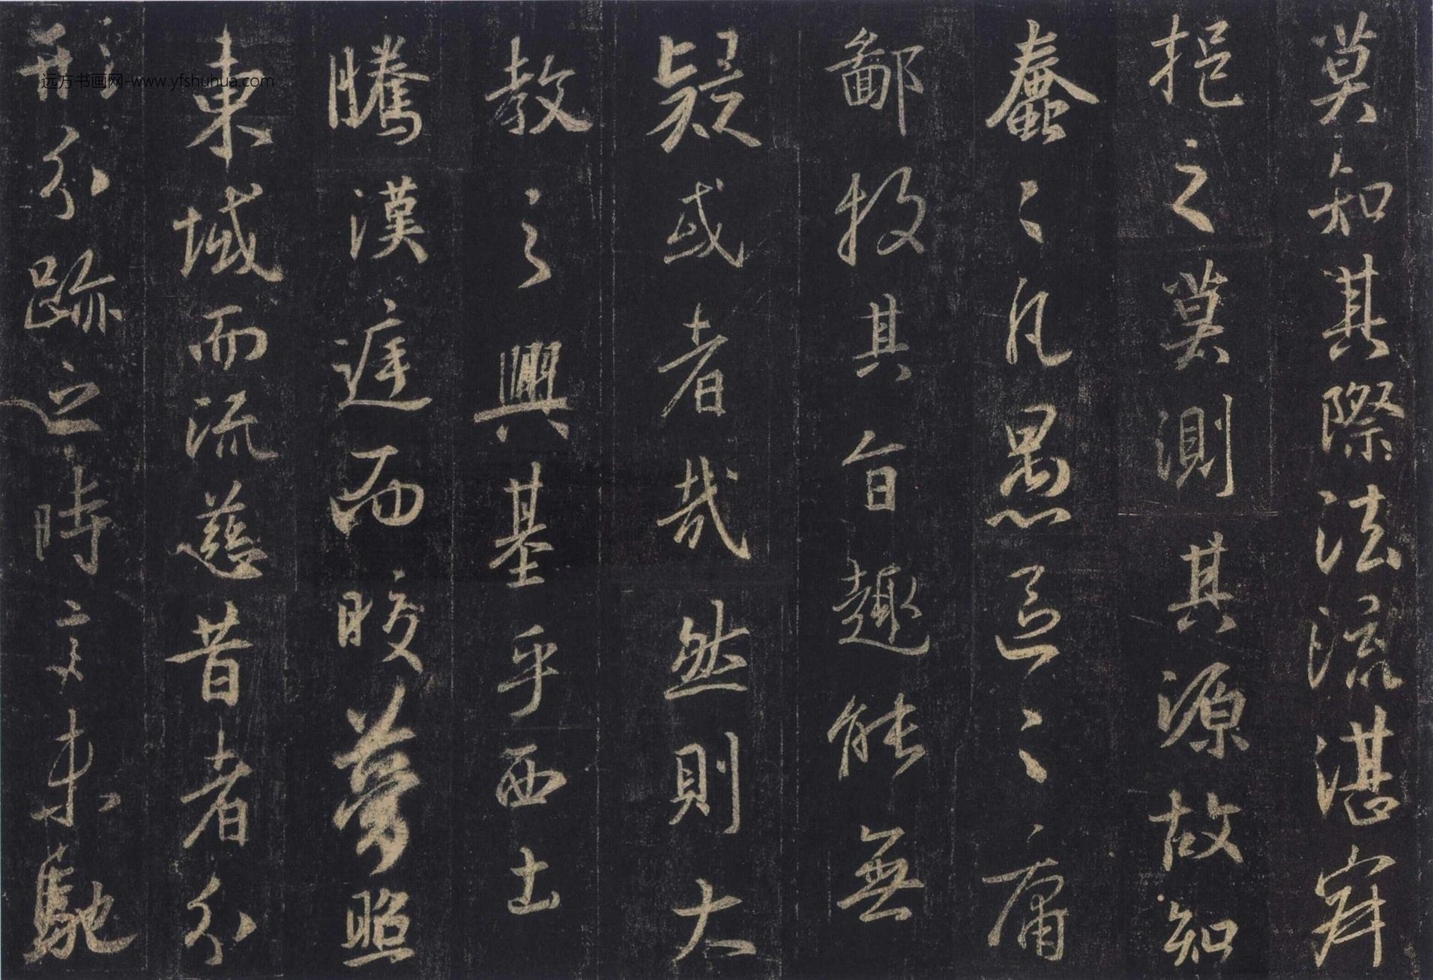 莫知其際法流湛寂
挹之莫測其源故知
蠢〻凡愚區〻庸
鄙投其旨趣能無
疑或者哉然則大
教之興基乎西土
騰漢庭而皎夢照
東域而流慈昔者分
形分跡之時言未馳
远方书画网-www.yfshuhua.com